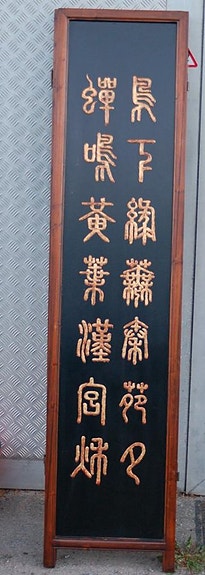 鳥下綠蕪秦苑夕
蟬鳴黃葉漢宮秋